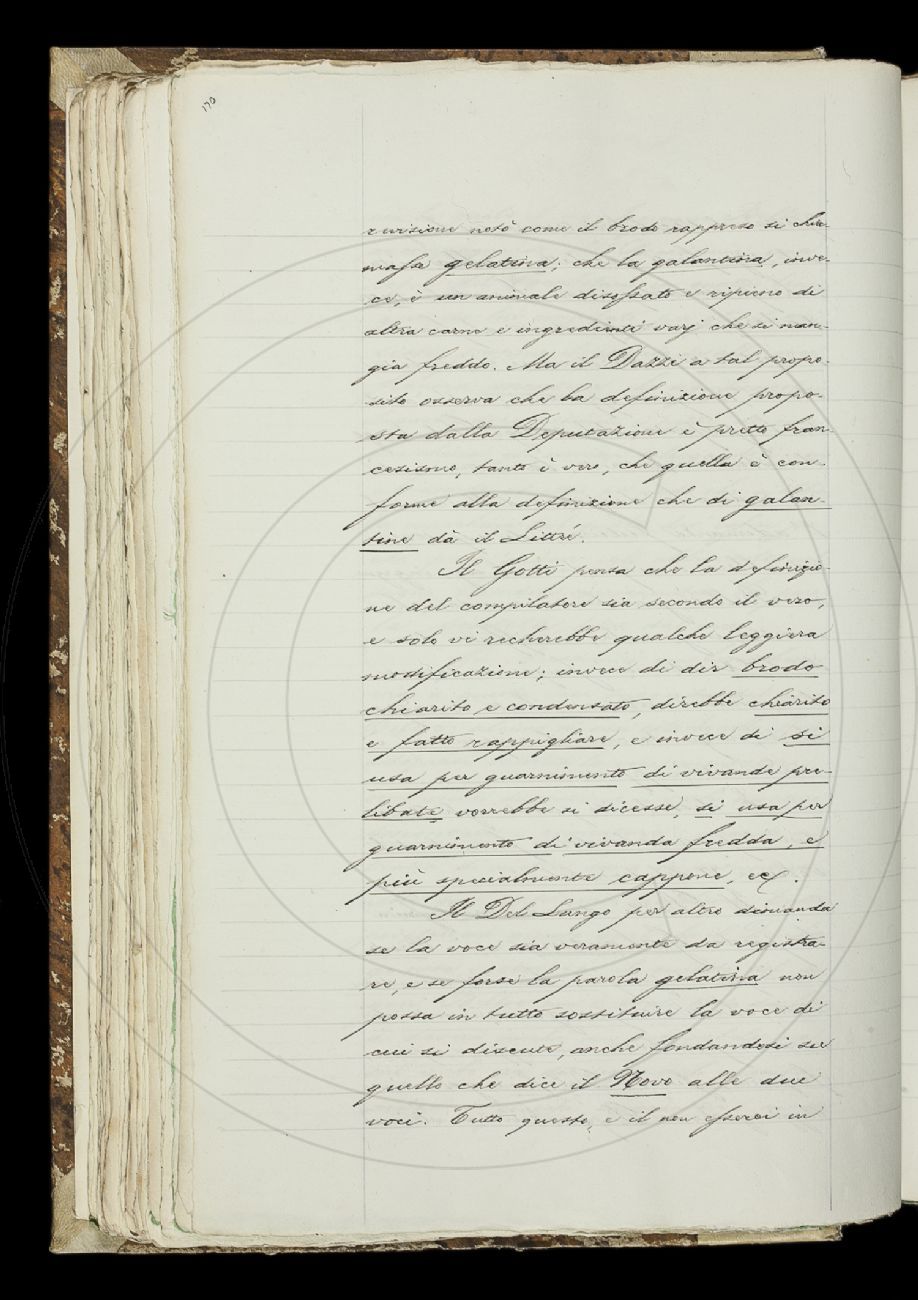 170
revisione notò come il brodo rappreso si chia-
masse gelatina; che la galantina, inve-
ce, è un animale disossato e ripieno di
altra carne e ingredienti varj che si man-
gia freddo. Ma il Dazzi a tal propo-
sito osserva che la definizione propo-
sta dalla Deputazione è pretto fran-
cesismo, tanto è vero, che quella è con-
forme alla definizione che di galan-
tine dà il Littré.
Il Gotti pensa che la definizio-
ne del compilatore sia secondo il vero,
e solo vi recherebbe qualche leggiera
modificazione; invece di dir brodo
chiarito e condensato, direbbe chiarito
e fatto rappigliare, e invece di si
usa per guarnimento di vivande pre-
libate vorrebbe si dicesse, si usa per
guarnimento di vivanda fredda, e
più specialmente cappone, ec.
Il Del Lungo per altro dimanda
se la voce sia veramente da registra-
re, e se forse la parola gelatina non
possa in tutto sostituire la voce di
cui si discute, anche fondandosi su
quello che dice il Novo alle due
voci. Tutto questo, e il non esserci in